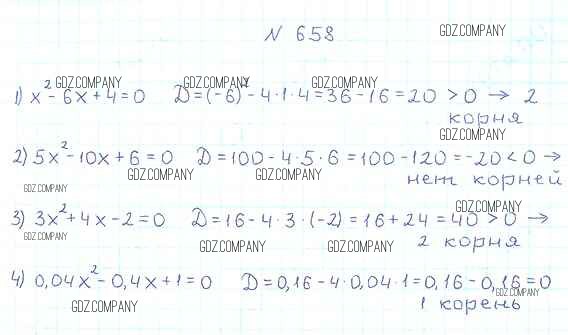 N 658
GDZ.COMPANY
GDZ.COMPANY GDZ.COMPANY GDZ.COMPANY
1) x² - 6x + 4 = 0 D = (-6)² - 4·1·4 = 36 - 16 = 20 > 0 → 2
корня
GDZ.COMPANY
2) 5x² - 10x + 6 = 0 D = 100 - 4·5·6 = 100 - 120 = -20 < 0 →
GDZ.COMPANY GDZ.COMPANY
нет корней
GDZ.COMPANY
GDZ.COMPANY
3) 3x² + 4x - 2 = 0 D = 16 - 4·3·(-2) = 16 + 24 = 40 > 0 →
GDZ.COMPANY
2 корня
GDZ.COMPANY GDZ.COMPANY
4) 0,04x² - 0,4x + 1 = 0 D = 0,16 - 4·0,04·1 = 0,16 - 0,16 = 0
GDZ.COMPANY
1 корень
GDZ.COMPANY